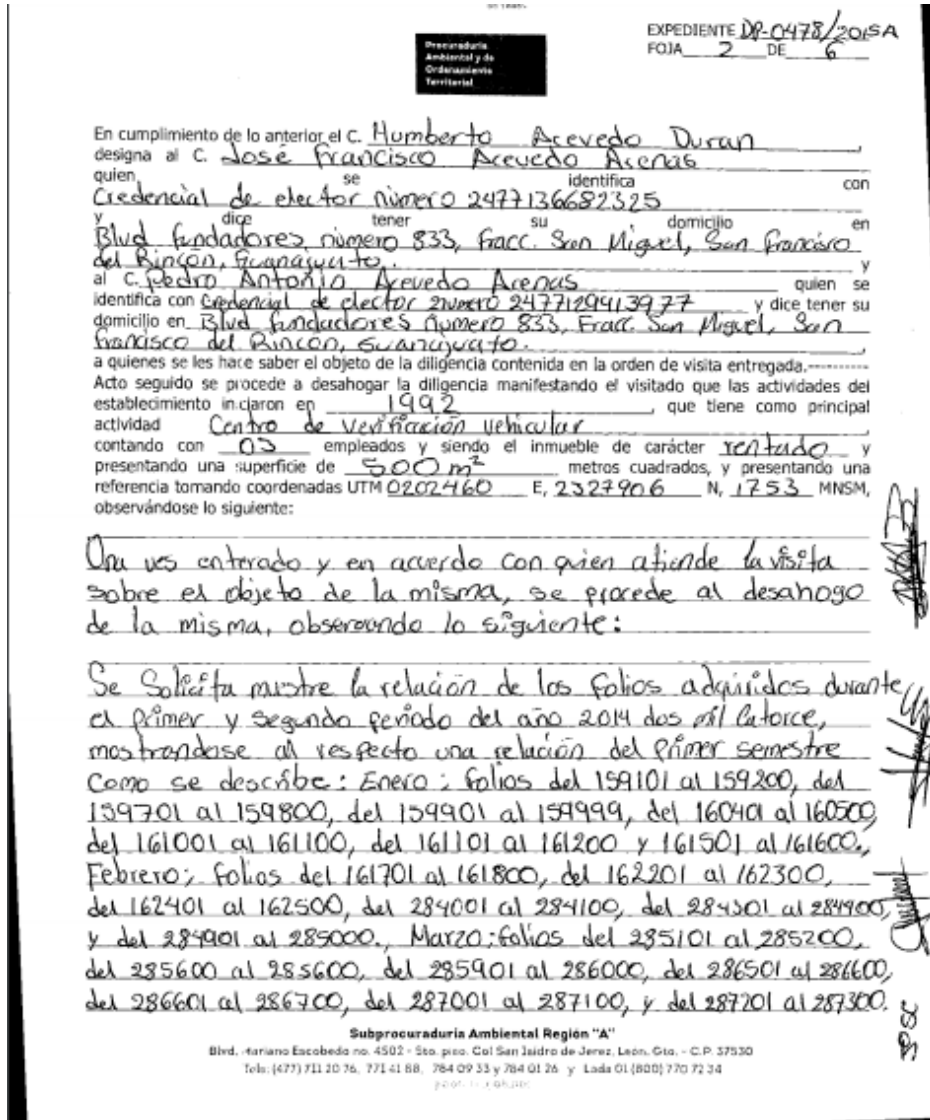 EXPEDIENTE DP-0478/2015A
FOJA 2 DE 6
Procuraduría
Ambiental y de
Ordenamiento
Territorial
En cumplimiento de lo anterior el C. Humberto Acevedo Duran,
designa al C. José Francisco Acevedo Arenas
quien se identifica con
Credencial de elector número 2477136682325
y dice tener su domicilio en
Blvd fundadores número 833, Fracc. San Miguel, San Francisco
del Rincón, Guanajuato. y
al C. Pedro Antonio Acevedo Arenas quien se
identifica con Credencial de elector número 2477129413977 y dice tener su
domicilio en Blvd fundadores número 833, Fracc. San Miguel, San
Francisco del Rincón, Guanajuato.,
a quienes se les hace saber el objeto de la diligencia contenida en la orden de visita entregada.----------
Acto seguido se procede a desahogar la diligencia manifestando el visitado que las actividades del
establecimiento iniciaron en 1992, que tiene como principal
actividad Centro de verificación vehicular,
contando con 03 empleados y siendo el inmueble de carácter rentado y
presentando una superficie de 500 m² metros cuadrados, y presentando una
referencia tomando coordenadas UTM 0202460 E, 2327906 N, 1753 MNSM,
observándose lo siguiente:
Una ves enterado y en acuerdo con quien atiende la visita
sobre el objeto de la misma, se procede al desahogo
de la misma, observando lo siguiente:
Se Solicita mostre la relación de los folios adquiridos durante
el primer y segundo periodo del año 2014 dos mil Catorce,
mostrandose al respecto una relación del primer semestre
Como se describe: Enero; folios del 159101 al 159200, del
159701 al 159800, del 159901 al 159999, del 160401 al 160500,
del 161001 al 161100, del 161101 al 161200 y 161501 al 161600.,
Febrero; folios del 161701 al 161800, del 162201 al 162300,
del 162401 al 162500, del 284001 al 284100, del 284301 al 284400,
y del 284901 al 285000., Marzo; folios del 285101 al 285200,
del 285600 al 285600, del 285901 al 286000, del 286501 al 286600,
del 286601 al 286700, del 287001 al 287100, y del 287201 al 287300.
Subprocuraduría Ambiental Región "A"
Blvd. Mariano Escobedo no. 4502 - 5to. piso. Col San Isidro de Jerez, León, Gto. - C.P. 37530
Tels: (477) 711 20 76, 771 41 88, 784 09 33 y 784 01 26 y Lada 01 (800) 770 72 34